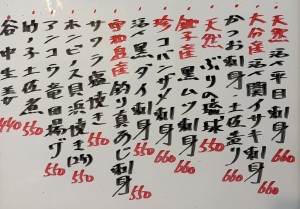 天然 活〆平目刺身 660
大分産 活〆関イサキ刺身 660
かつお刺身 土佐造り 660
天然 ぶりの琉球 550
銚子産 黒ムツ刺身 660
珍 コバンザメ刺身 660
活〆黒ダイ刺身 550
宇和島産 釣り真あじ刺身 550
サワラ塩焼き 550
ホンビノス貝浜焼き(2ケ) 550
アンコウ竜田揚げ 550
竹の子土佐煮 550
谷中生姜 440